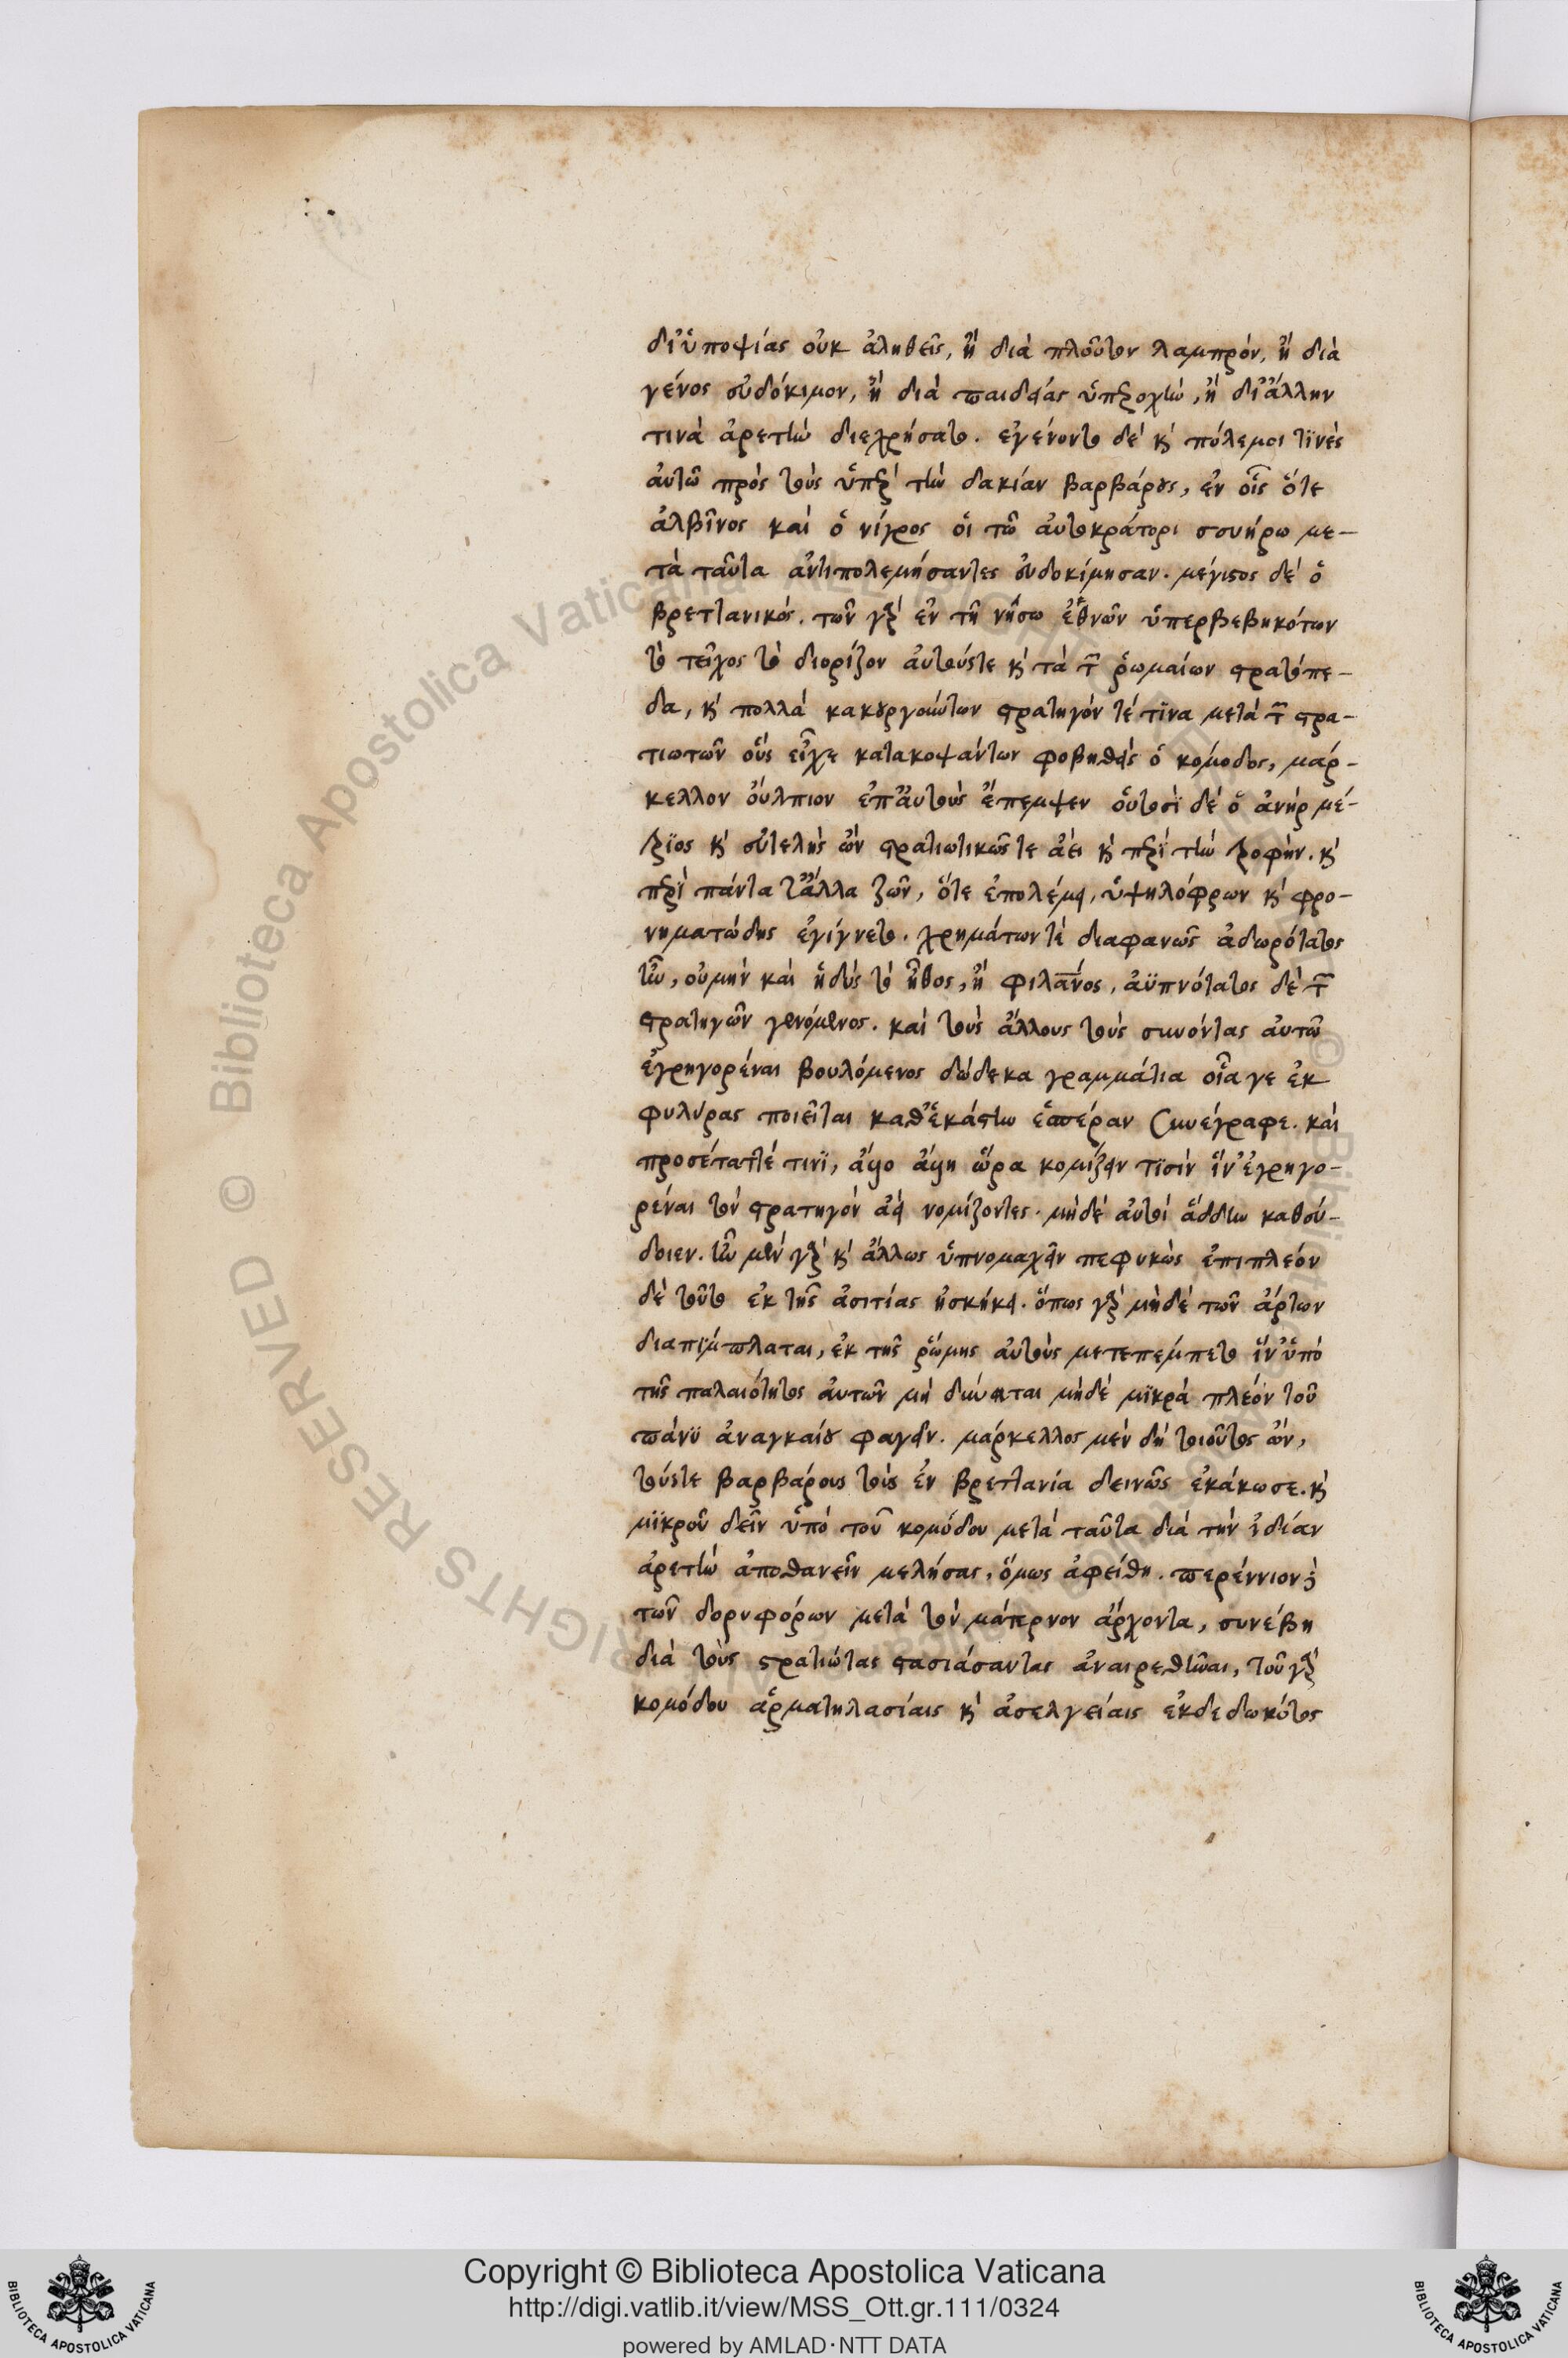 δι᾽ ὑποψίας οὐκ ἀληθεῖς, ἢ διὰ πλοῦτον λαμπρόν, ἢ διὰ
γένος εὐδόκιμον, ἢ διὰ παιδείας ὑπεροχὴν, ἢ δι᾽ ἄλλην
τινὰ ἀρετὴν διεχρήσατο. ἐγένοντο δὲ κ πόλεμοι τϊνὲς
ἀυτῶ πρὸς τοὺς ὑπὲρ τὴν δακίαν βαρβάρους, ἐν οἷς ὅτε
ἀλβῖνος καὶ ὁ νίγρος οἱ τῶ ἀυτοκράτορι σευήρω με-
τὰ ταῦτα ἀντιπολεμήσαντες εὐδοκίμησαν. μέγιστος δὲ ὁ
βρεττανικός. τῶν γὰρ ἐν τῆ νήσω ἐθνῶν ὑπερβεβηκότων
τὸ τεῖχος τὸ διορίζον ἀυτούςτε κ τὰ τῶν ῥωμαίων στρατόπε-
δα, κ πολλὰ κακουργούντων στρατηγόν τέ τϊνα μετὰ τῶν στρα-
τιωτῶν οὓς εἶχε κατακοψάντων φοβηθεὶς ὁ κομοδος, μάρ-
κελλον ὄυλπιον ἐπ᾽ ἀυτοὺς ἔπεμψεν οὑτοσῒ δὲ ὁ ἀνὴρ μέ-
τρϊος κ εὐτελὴς ὢν στρατιωτικῶς τε ἀεὶ κ περὶ τὴν τροφὴν. κ
περὶ πάντα τἄλλα ζῶν, ὅτε ἐπολέμει, ὑψηλόφρων κ φρο-
νηματώδης ἐγίγνετο. χρημάτων τὲ διαφανῶς ἀδωρότατος
ἦν, οὐμὴν καὶ ἡδὺς τὸ ἦθος, ἢ φιλανος, ἀϋπνότατος δὲ τῶν
στρατηγῶν γενόμενος. καὶ τοὺς ἄλλους τοὺς συνόντας ἀυτῶ
ἐγρηγορέναι βουλόμενος δώδεκα γραμμάτια οἷα γε ἐκ
φιλύρας ποιεῖται καθ᾽ ἑκάστην ἑσπέραν συνέγραφε. καὶ
προσέταττέ τινϊ, ἄλλο ἄλλη ὥρα κομίζειν τϊσὶν ἵν᾽ ἐγρηγο-
ρέναι τὸν στρατηγὸν ἀεὶ νομίζοντες. μὴδὲ ἀυτοὶ ἄδδην καθεύ-
δοιεν. ἦν μὲν γὰρ κ ἄλλως ὑπνομαχεῖν πεφυκὼς ἐπιπλέον
δὲ τοῦτο ἐκ τῆς ἀσιτίας ἠσκήκει. ὅπως γὰρ μὴδὲ τῶν ἄρτων
διαπϊμπλαται, ἐκ τῆς ῥώμης ἀυτοὺς μετεπέμπετο ἵν᾽ ὑπὸ
τῆς παλαιότητος ἀυτῶν μὴ δύνηται μὴδὲ μϊκρὰ πλέον τοῦ
πάνϋ ἀναγκαίου φαγεῖν. μάρκελλος μὲν δὴ τοιοῦτος ὢν,
τούςτε βαρβάρους τοὺς ἐν βρεττανία δεινῶς ἐκάκωσε. κ
μϊκροῦ δεῖν ὑπὸ τοῦ κομόδου μετὰ ταῦτα διὰ τὴν ἰδίαν
ἀρετὴν ἀποθανεῖν μελήσας, ὅμως ἀφείθη. περέννιον δὲ
τῶν δορυφόρων μετὰ τὸν μάτερνον ἄρχοντα, συνέβη
διὰ τοὺς στρατιώτας στασιάσαντας ἀναιρεθῆναι, τοῦ γὰρ
κομόδου ἁρματηλασίαις κ ἀσελγείαις ἐκδεδωκότος
Copyright © Biblioteca Apostolica Vaticana
http://digi.vatlib.it/view/MSS_Ott.gr.111/0324
powered by AMLAD·NTT DATA